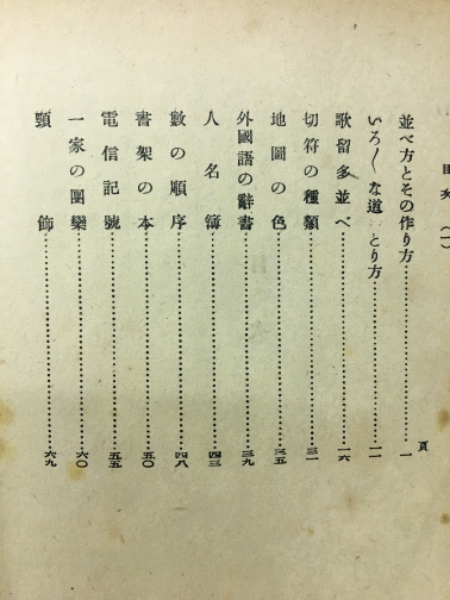 目次 (一)
頁
並べ方とその作り方……………一
いろ〳〵な道のとり方……………一一
歌留多並べ……………一六
切符の種類……………三一
地圖の色……………三五
外國語の辭書……………三九
人名簿……………四三
數の順序……………四八
書架の本……………五〇
電信記號……………五五
一家の團欒……………六〇
頸飾……………六九